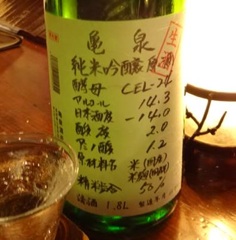 亀泉
生酒
純米吟醸 原酒
酵母 CEL-24
アルコール 14.3
日本酒度 -14.0
酸度 2.0
アミノ酸 1.2
原材料名 米(国産)
米麹(国産米)
精米歩合 50%
清酒 1.8L 製造年月